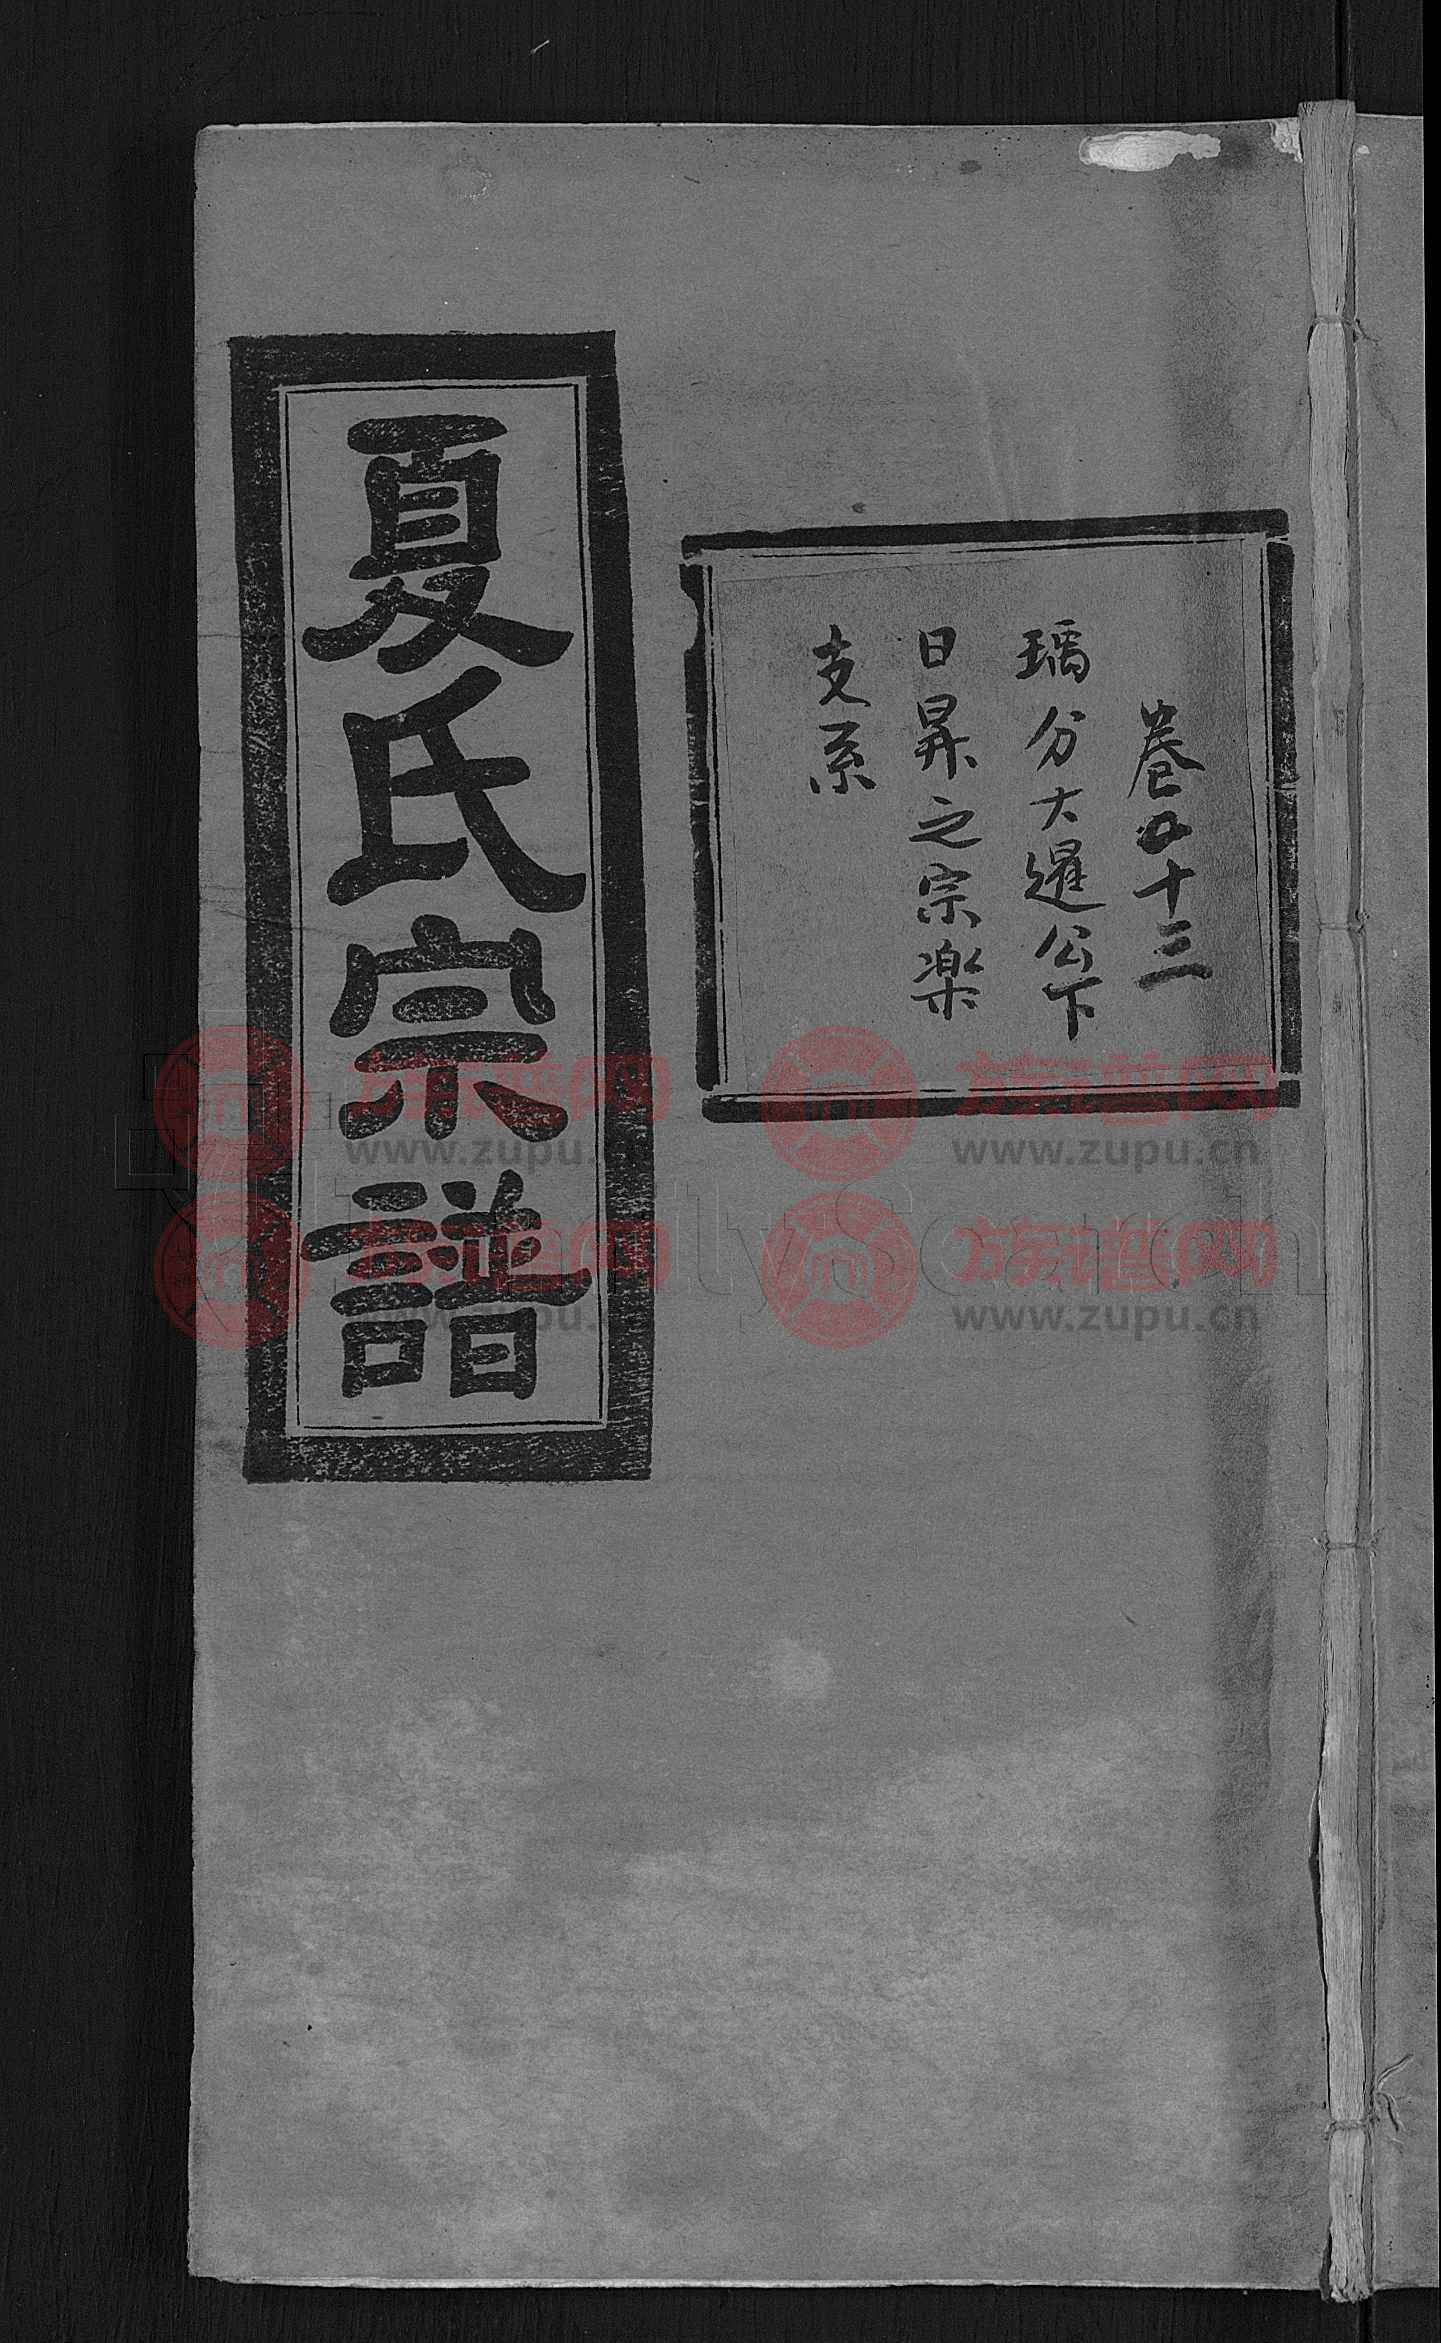 卷五十三
瑀分大暹公下
日昇之宗楽
支系
夏氏宗譜
族谱网
www.zupu.cn
族谱网
www.zupu.cn
族谱网
www.zupu.cn
族谱网
www.zupu.cn
FamilySearch